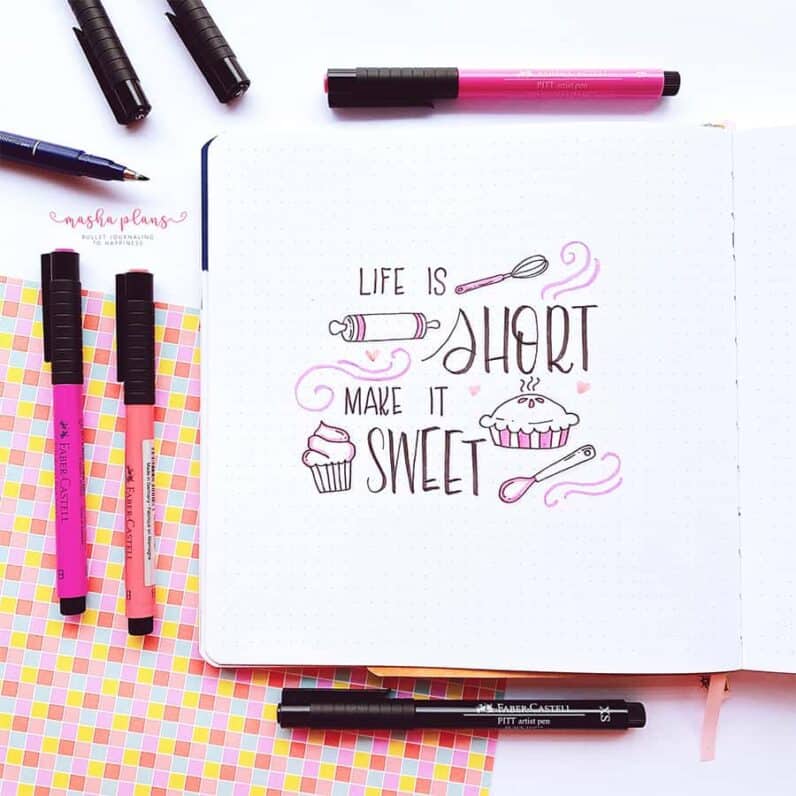 FABER-CASTELL
PITT artist pen
B
masha plans
BULLET JOURNALING
TO HAPPINESS
LIFE IS
SHORT
MAKE IT
SWEET
FABER-CASTELL
B
FABER-CASTELL
B
FABER-CASTELL
PITT artist pen
XS